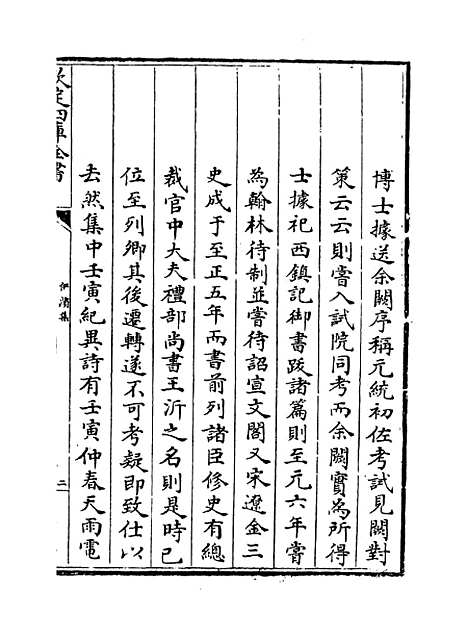 博士據送余闕序稱元統初佐考試見闕對
策云云則嘗入試院同考而余闕實為所得
士據祀西鎮記御書跋諸篇則至元六年嘗
為翰林待制並嘗待詔宣文閣又宋遼金三
史成于至正五年而書前列諸臣修史有總
裁官中大夫禮部尚書王沂之名則是時已
位至列卿其後遷轉遂不可考疑即致仕以
去然集中壬寅紀異詩有壬寅仲春天雨電
欽定四庫全書
伊濱集
二